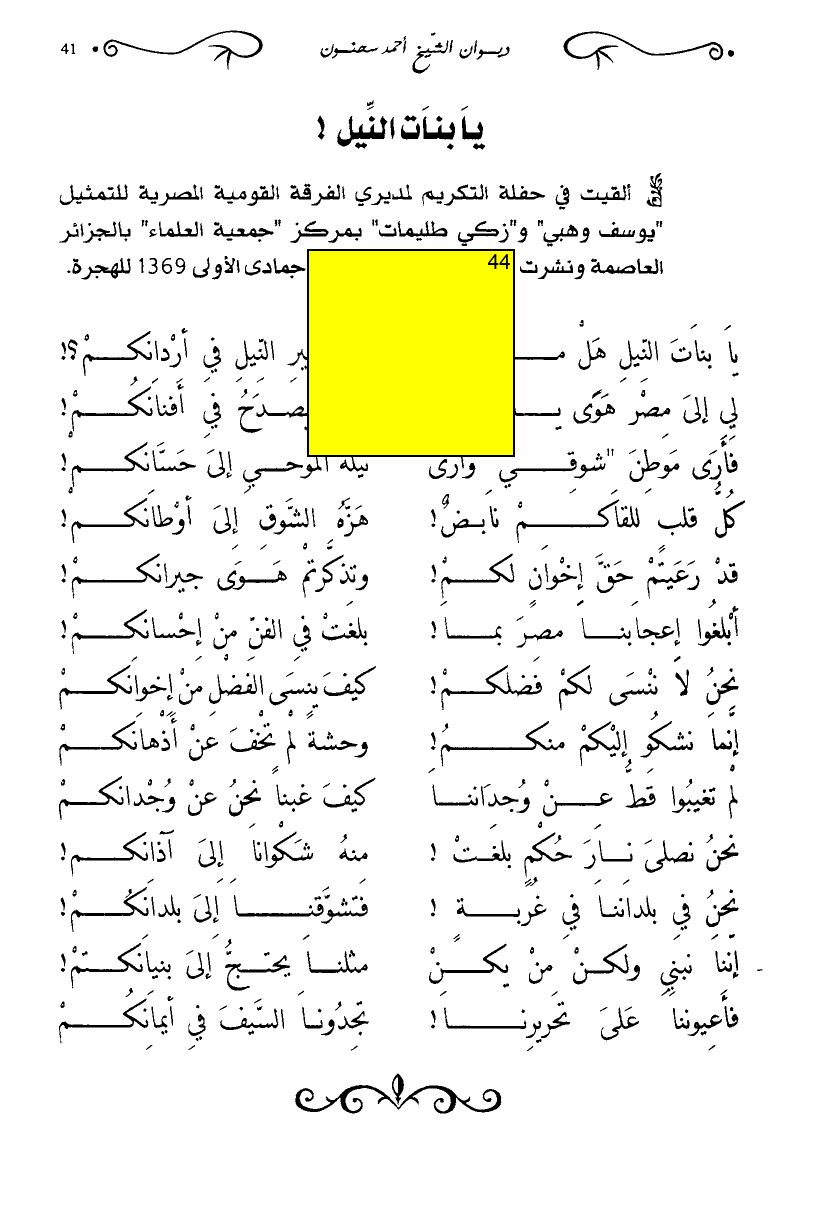 41 ديـوان الشّيخ أحمد سحنـون
يَا بنَات النِّيل !
ألقيت في حفلة التكريم لمديري الفرقة القومية المصرية للتمثيل
"يوسف وهبي" و"زكي طليمات" بمركز "جمعية العلماء" بالجزائر
العاصمة ونشرت 44 جمادى الأولى 1369 للهجرة.
يَا بناتَ النّيلِ هَلْ النّيلِ في أرْدانكـمْ؟!
لي إلىَ مِصْر هَوًى يصدَحُ في أفنانكُـمْ!
فأرَى مَوطِنَ "شوقـي وأرى نيله الموحـي إلىَ حَسَّانكـم!
كلُّ قلب للقاكـمْ نابـضٌ! هَزَّهُ الشَّوق إلىَ أوْطانكـم!
قدْ رَعَيتمْ حَقَّ إخْوانٍ لكـمْ! وتذكّرتمْ هَـوَى جيرانكـمْ!
أبْلغُوا إعجابنـا مصرَ بمـا! بلغتْ في الفنّ منْ إحْسانكـمْ!
نحنُ لاَ ننْسَى لكمْ فضلكـمْ! كيفَ ينسَى الفضْل منْ إخوانكـمْ
إنّما نشكُو إليْكمْ منكـمُ! وحشةً لمْ تخْفَ عنْ أذْهانكـمْ
لمْ تغيبُوا قطُّ عـنْ وُجدَاننـا كيفَ غبناَ نحنُ عنْ وُجْدانكـمْ
نحنُ نصلىَ نـارَ حُكْمٍ بلغـتْ ! منهُ شكْواناَ إلىَ آذانكـم!
نحنُ في بلداننـا في غُربـة ! فتشوَّقنـا إلىَ بلدانكُـمْ!
إنناَ نبني ولكـنْ منْ يكـنْ مثلنـا يحتـجُّ إلىَ بنيانكـمْ!
فأعيونناَ عَلىَ تحْريرنـا! تجدُونـا السَّيفَ في أيمانكُـمْ